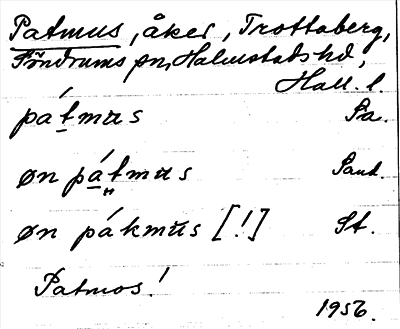 Patmus, åker, Trottaberg,
Döndrums sn, Halmstads hd,
Hall. l.
pátmus Pa.
øn pátmus Sant.
øn pákmus [!] St.
Patmos!
1956.